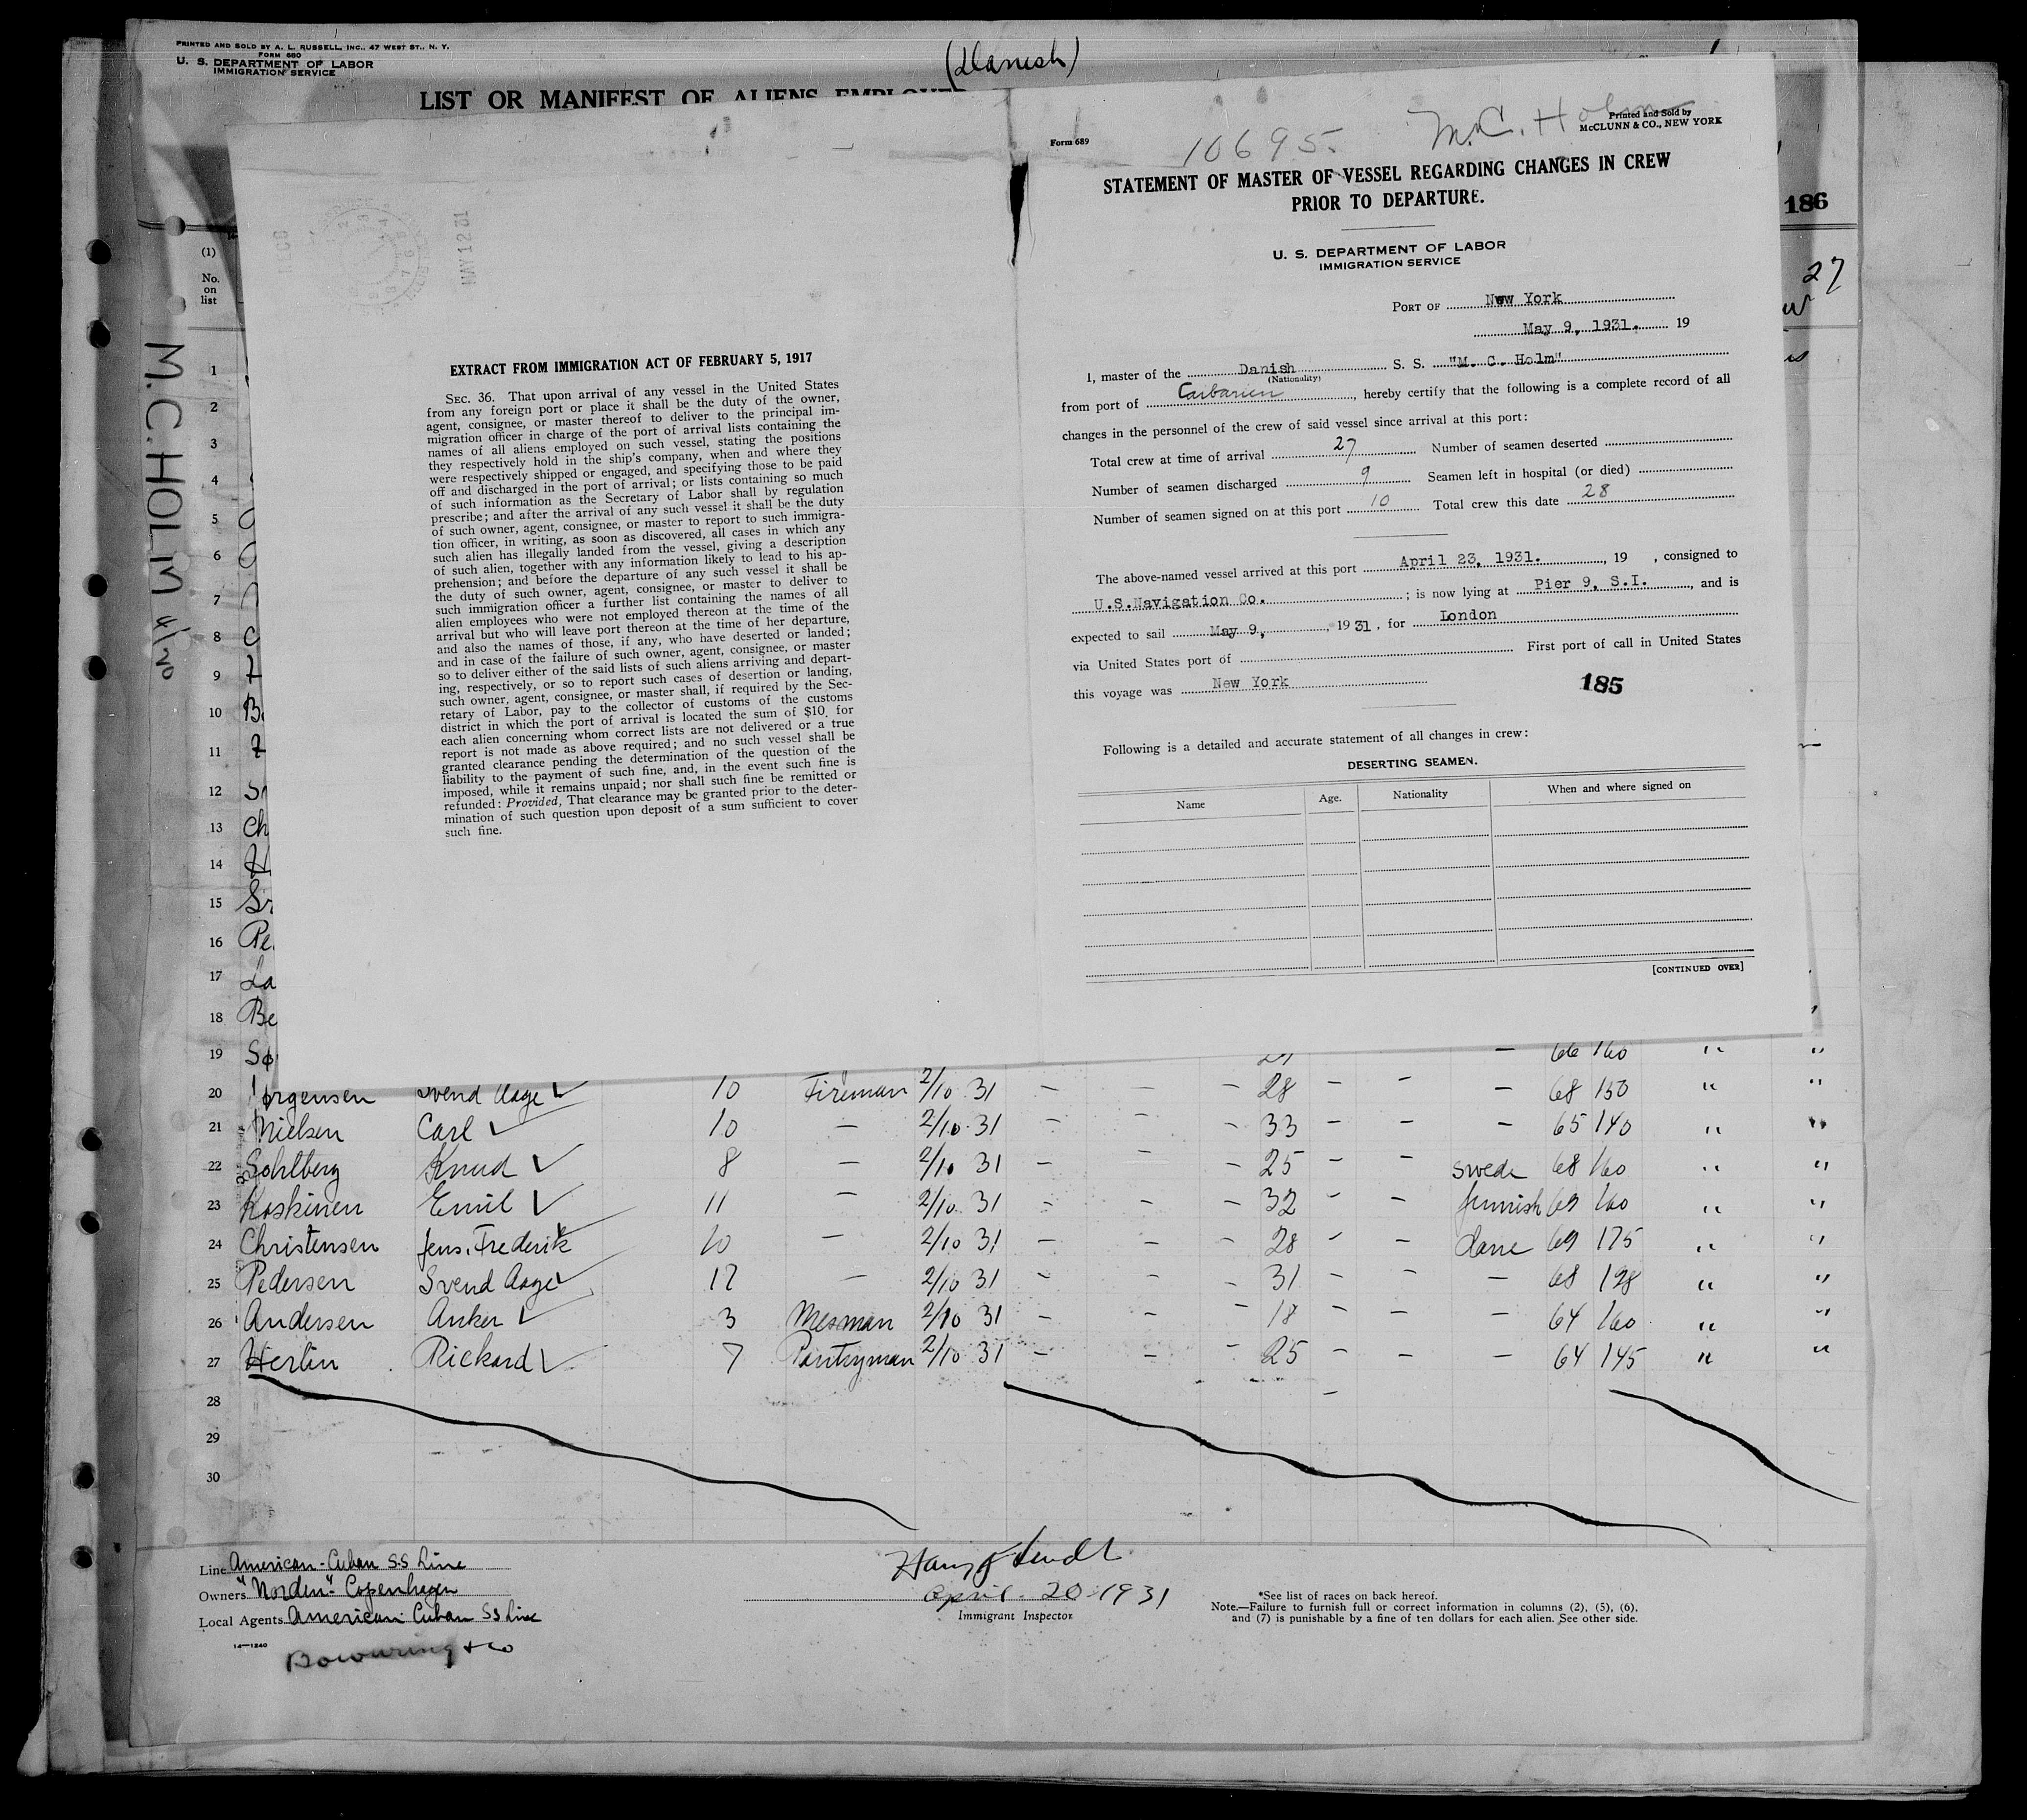 PRINTED AND SOLD BY A. L. RUSSELL, INC., 47 WEST ST., N. Y.
FORM 680
U. S. DEPARTMENT OF LABOR
IMMIGRATION SERVICE
(Danish)
LIST OR MANIFEST OF ALIENS EMPLOYED
186
27
(1)
No.
on
list
M.C. HOLM 4/20
MAY 12 31
EXTRACT FROM IMMIGRATION ACT OF FEBRUARY 5, 1917
SEC. 36. That upon arrival of any vessel in the United States
from any foreign port or place it shall be the duty of the owner,
agent, consignee, or master thereof to deliver to the principal im-
migration officer in charge of the port of arrival lists containing the
names of all aliens employed on such vessel, stating the positions
they respectively hold in the ship's company, when and where they
were respectively shipped or engaged, and specifying those to be paid
off and discharged in the port of arrival; or lists containing so much
of such information as the Secretary of Labor shall by regulation
prescribe; and after the arrival of any such vessel it shall be the duty
of such owner, agent, consignee, or master to report to such immigra-
tion officer, in writing, as soon as discovered, all cases in which any
such alien has illegally landed from the vessel, giving a description
of such alien, together with any information likely to lead to his ap-
prehension; and before the departure of any such vessel it shall be
the duty of such owner, agent, consignee, or master to deliver to
such immigration officer a further list containing the names of all
alien employees who were not employed thereon at the time of the
arrival but who will leave port thereon at the time of her departure,
and also the names of those, if any, who have deserted or landed;
and in case of the failure of such owner, agent, consignee, or master
so to deliver either of the said lists of such aliens arriving and depart-
ing, respectively, or so to report such cases of desertion or landing,
such owner, agent, consignee, or master shall, if required by the Sec-
retary of Labor, pay to the collector of customs of the customs
district in which the port of arrival is located the sum of $10 for
each alien concerning whom correct lists are not delivered or a true
report is not made as above required; and no such vessel shall be
granted clearance pending the determination of the question of the
liability to the payment of such fine, and, in the event such fine is
imposed, while it remains unpaid; nor shall such fine be remitted or
refunded: Provided, That clearance may be granted prior to the deter-
mination of such question upon deposit of a sum sufficient to cover
such fine.
Form 689
10695.
M.C. Holm
Printed and Sold by
McCLUNN & CO., NEW YORK
STATEMENT OF MASTER OF VESSEL REGARDING CHANGES IN CREW
PRIOR TO DEPARTURE.
U. S. DEPARTMENT OF LABOR
IMMIGRATION SERVICE
PORT OF New York
May 9, 1931. 19
I, master of the Danish S. S. "M. C. Holm"
(Nationality)
from port of Caibarien, hereby certify that the following is a complete record of all
changes in the personnel of the crew of said vessel since arrival at this port:
Total crew at time of arrival 27 Number of seamen deserted
Number of seamen discharged 9 Seamen left in hospital (or died)
Number of seamen signed on at this port 10 Total crew this date 28
The above-named vessel arrived at this port April 23, 1931., 19 , consigned to
U.S.Navigation Co. ; is now lying at Pier 9, S.I., and is
expected to sail May 9, , 1931, for London
via United States port of First port of call in United States
this voyage was New York
185
Following is a detailed and accurate statement of all changes in crew:
DESERTING SEAMEN.
Name Age. Nationality When and where signed on
[CONTINUED OVER]
1
2
3
4
5
6
7
8
9
10
11
12
13 Ch
14
15
16 Pe
17 La
18 Be
19 Sø — 66 160 " "
20 Jörgensen Svend Aage ✓ 10 Fireman 2/10 31 — — — 28 — — — 68 150 " "
21 Nielsen Carl ✓ 10 — 2/10 31 — — — 33 — — — 65 140 " "
22 Sohlberg Knud ✓ 8 — 2/10 31 — — — 25 — — swede 68 160 " "
23 Koskinen Emil ✓ 11 — 2/10 31 — — — 32 — — finnish 69 160 " "
24 Christensen Jens. Frederik 10 — 2/10 31 — — — 28 — — dane 69 175 " "
25 Pedersen Svend Aage ✓ 12 — 2/10 31 — — — 31 — — — 68 198 " "
26 Andersen Anker ✓ 3 Mesman 2/10 31 — — — 18 — — — 64 160 " "
27 Herlin Rickard ✓ 7 Pantryman 2/10 31 — — — 25 — — — 64 145 " "
28
29
30
Line American-Cuban S.S Line
Owners "Norden" Copenhagen
Local Agents American Cuban SS Line
14—1240
Bowring & Co
April. 20-1931
Immigrant Inspector
*See list of races on back hereof.
Note.—Failure to furnish full or correct information in columns (2), (5), (6),
and (7) is punishable by a fine of ten dollars for each alien. See other side.